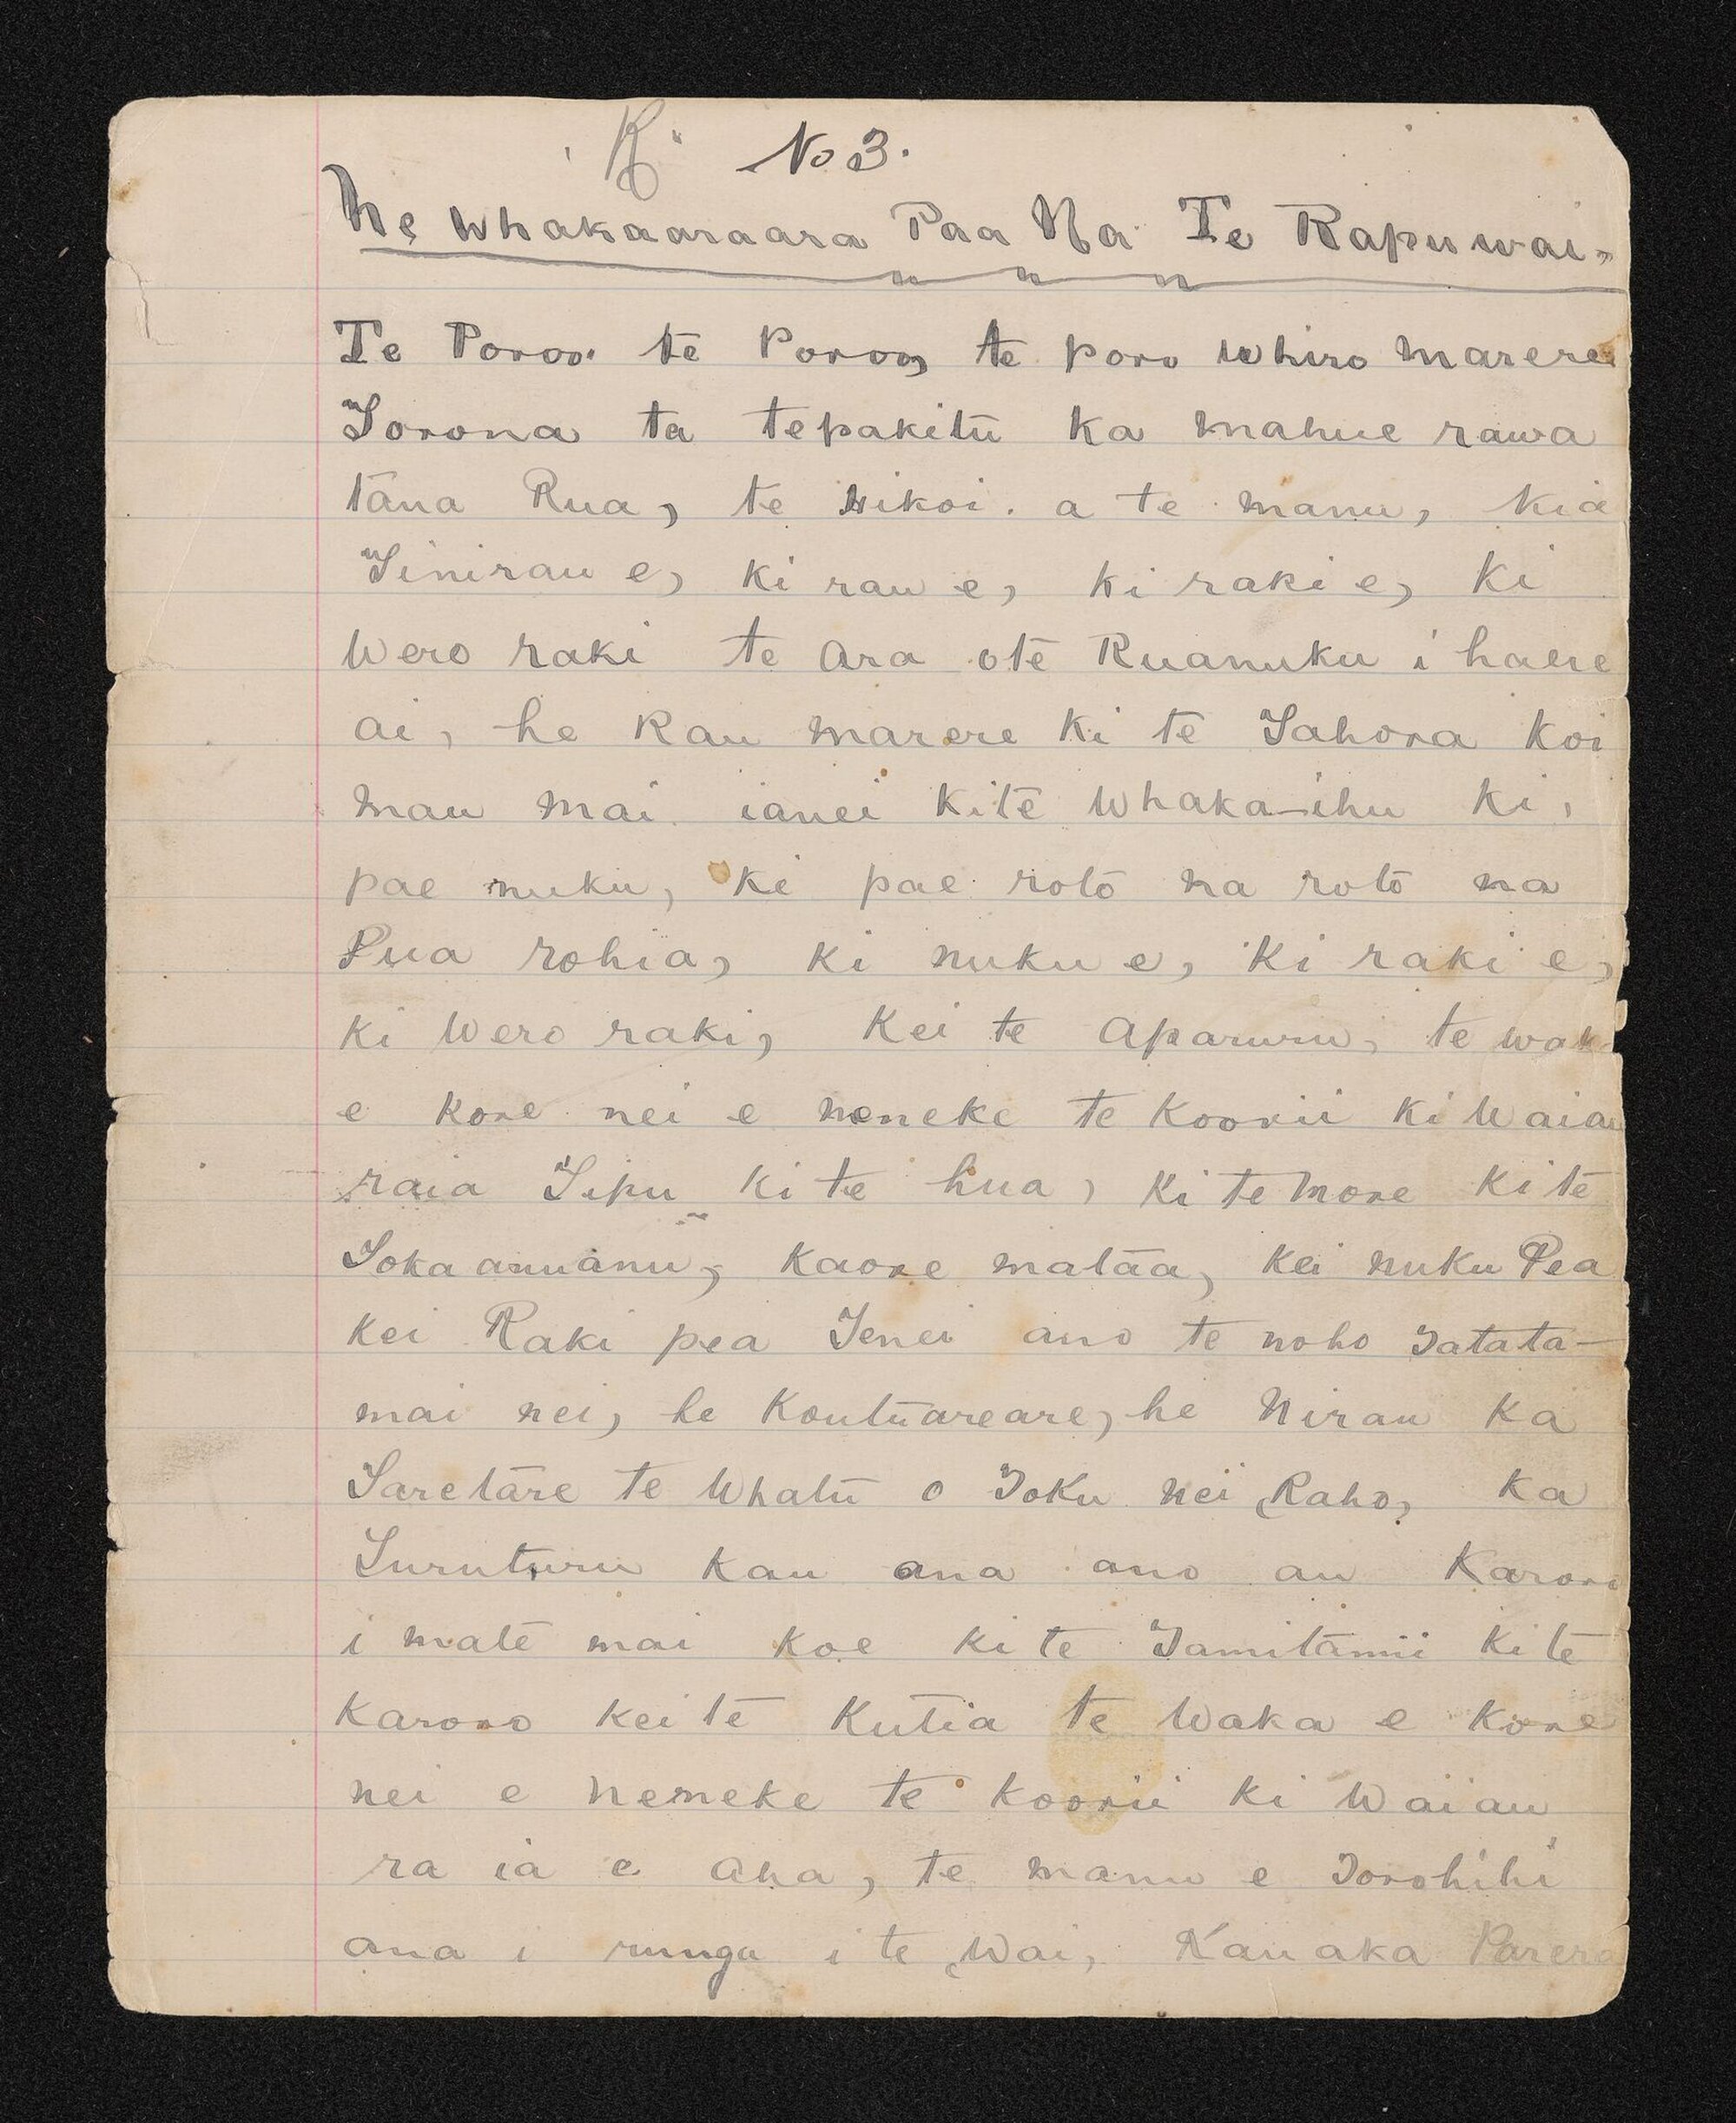 K. No 3.
He Whakaaraara Paa Na Te Rapuwai.
Te Poroo. te Poroo, te poro whiro marere
Torona ta tepakitu Ka mahue rawa
tana Rua, te Hikoi. a te manu, Kia
Tinirau e, Ki rau e, Ki raki e, Ki
Wero raki te Ara ote Ruanuku i haere
ai, he Rau marere Ki te Tahora Koi
mau mai ianei Kite Whaka-ihu Ki,
pae nuku, Ki pae roto na roto na
Pua rohia, Ki nuku e, Ki raki e,
Ki Wero raki, Kei te Aparuru, te
e Kore nei e neneke te Koorii Ki Waiau
raia Tipu Ki te hua, Ki te More Ki te
Tokaanuanu, Kaore mataa, Kei nuku Pea
Kei Raki pea Tenei ano te noho Tatata-
mai nei, he Koutuareare, he Nirau Ka
Taretare te Whatu o Toku nei Raho, Ka
Turuturu Kau ana ano au Karoro
i mate mai Koe Ki te Tamitamii Ki te
Karoro Kei te Kutia te Waka e Kore
nei e neneke te Koorii Ki Waiau
ra ia e aha, te manu e Torohihi
ana i runga i te Wai, Kau aka Parera